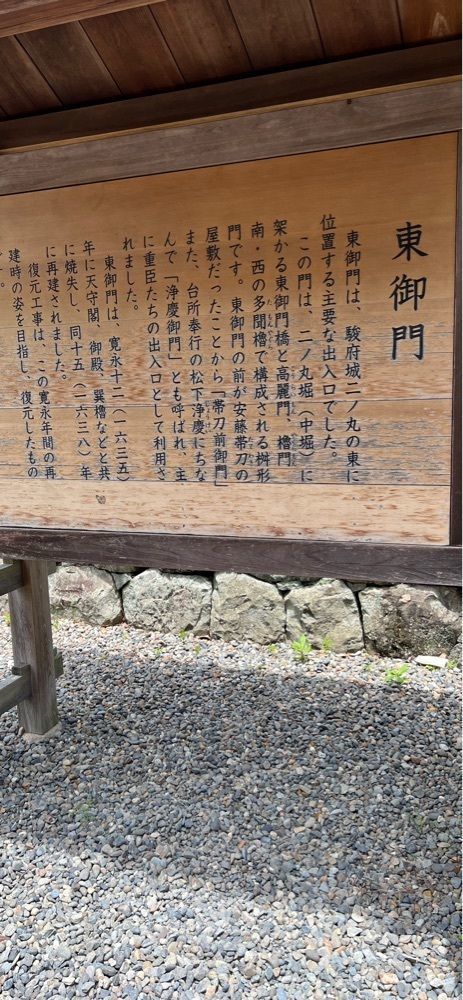 東御門
東御門は、駿府城二ノ丸の東に
位置する主要な出入口でした。
この門は、二ノ丸堀（中堀）に
架かる東御門橋と高麗門、櫓門
南・西の多聞櫓で構成される桝形
門です。東御門の前が安藤帯刀の
屋敷だったことから「帯刀前御門」
また、台所奉行の松下浄慶にちな
んで「浄慶御門」とも呼ばれ、主
に重臣たちの出入口として利用さ
れました。
東御門は、寛永十二（一六三五）
年に天守閣、御殿、巽櫓などと共
に焼失し、同十五（一六三八）年
に再建されました。
復元工事は、この寛永年間の再
建時の姿を目指し、復元したもの
です。